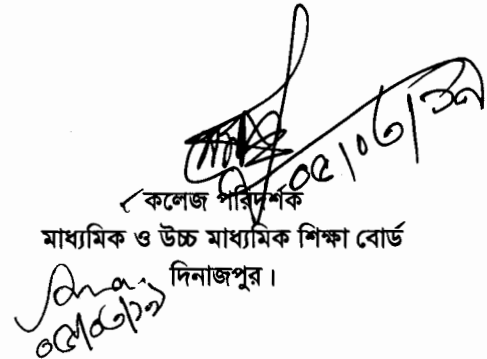 ০৫/০৩/১৯
কলেজ পরিদর্শক
মাধ্যমিক ও উচ্চ মাধ্যমিক শিক্ষা বোর্ড
দিনাজপুর।
০৫/০৩/১৯